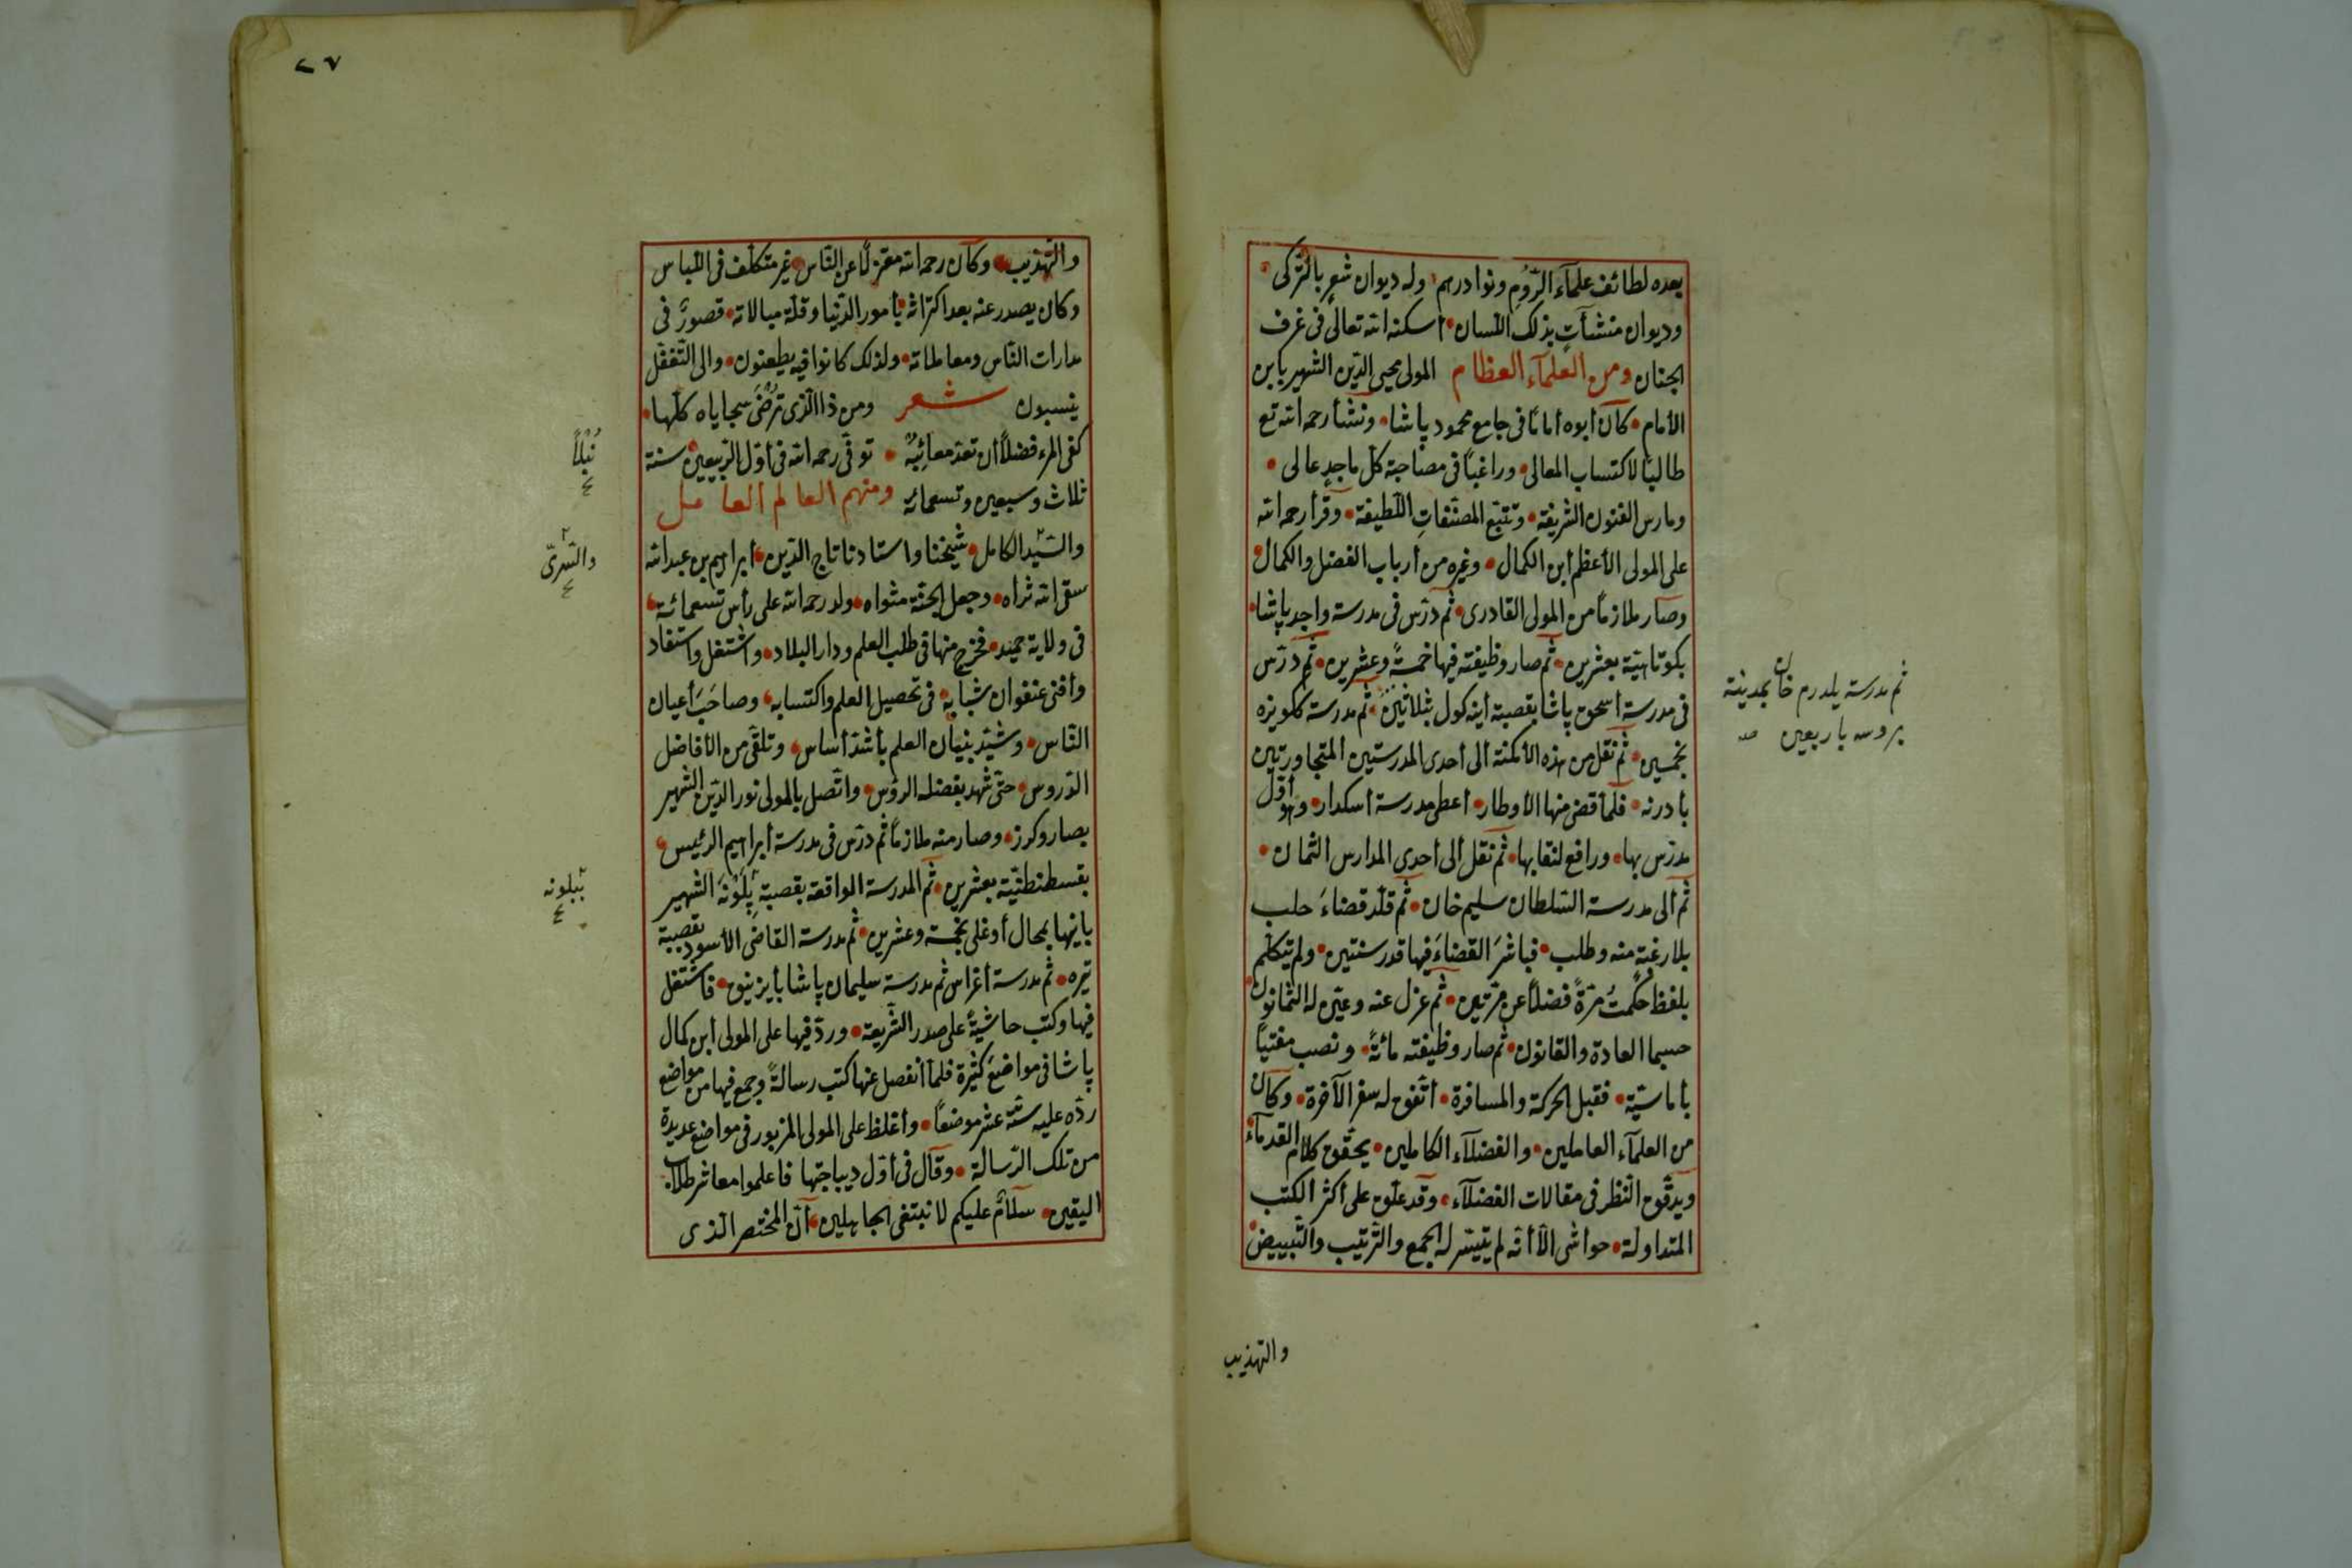 بعده لطائف علمآء الرّوم ونوادرهم وله ديوان شعر بالتّركى
وديوان منشآتٍ بذلك اللسان أسكنه الله تعالى فى غرف
الجنان ومن العلمآء العظام المولى محيى الدّين الشهير بابن
الأمام كان أبوه أمامًا فى جامع محمود پاشا ونشأ رحمه الله تع
طالبًا لاكتساب المعالى وراغبًا فى مصاحبة كلّ ماجدٍ عالى
ومارس الفنون الشريفة وتتبّع المصنّفات اللّطيفة وقرأ رحمه الله
على المولى الأعظم أبن الكمال وغيره من أرباب الفضل والكمال
وصار ملازمًا من المولى القادرى ثم درّس فى مدرسة واجد پاشا
بكوتاهيّة بعشرين ثم صار وظيفته فيها خمسةً وعشرين ثم درّس
فى مدرسة أسحق پاشا بقصبة أينه كول بثلاثين ثم مدرسة ككويزه
بخمسين ثم نقل من هذه الأمكنة ألى أحدى المدرستين المتجاورتين
بأدرنه فلمّا قضى منها الأوطار أعطى مدرسة أسكدار وهو أوّل
مدرّس بها ورافع لنقابها ثم نقل ألى أحدى المدارس الثمان
ثم ألى مدرسة السّلطان سليم خان ثم قلّد قضاءَ حلب
بلا رغبة منه وطلب فباشرَ القضاءَ فيها قدر سنتين ولم يتكلّم
بلفظ حكمتُ مرّةً فضلاً عن مرّتين ثم عزل عنه وعيّن له الثمانون
حسبما العادة والقانون ثم صار وظيفته مائةً ونصب مفتياً
بأماسيّة فقبل الحركة والمسافرة أتّفق له سفر الآخرة وكان
من العلمآء العاملين والفضلآء الكاملين يحقّق كلام القدمآء
ويدقّق النّظر فى مقالات الفضلآء وقد علّق على أكثر الكتب
المتداولة حواشى الاّ أنّه لم يتيسّر له الجمع والتّرتيب والتّبييض
والتهذيب
ثم مدرسة يلدرم خان بمدينة
بروسه باربعين صح
٢٧
والتّهذيب وكان رحمه الله معتزلاً عن النّاس غير متكلّف فى اللّباس
وكان يصدر عنه بعد اكتراثه بأمور الدّنيا وقلّة مبالاته قصورٌ فى
مدارات النّاس ومعاملاته ولذلك كانوا فيه يطعنون والى التّغفّل
ينسبون شعر ومن ذا الّذى تُرْضَى سجاياه كلّها
كفى المرء فضلاً أن تعدّ معائبُه توفّى رحمه الله فى أوّل الرّبيعين سنة
ثلاث وسبعين وتسعمائه ومنهم العالم العامل
والسّيّد الكامل شيخنا واستادنا تاج الدّين أبراهيم بن عبد الله
سقى الله ثراه وجعل الجنّة مثواه ولد رحمه الله على رأس تسعمائة
فى ولاية حميد فخرج منها فى طلب العلم ودار البلاد واشتغل واستفاد
وأفنى عنفوان شبابه فى تحصيل العلم واكتسابه وصاحَبَ أعيان
النّاس وشيّد بنيان العلم بأشدّ أساس وتلقّى من الأفاضل
الدّروس حتّى شهد بفضله الرؤس واتّصل بالمولى نور الدّين الشهير
بصارو كرز وصار منه ملازماً ثم درّس فى مدرسة أبراهيم الرئيس
بقسطنطنيّة بعشرين ثم المدرسة الواقعة بقصبة پِلَوْنَه الشهير
بانيها بمحال أوغلى بخمسة وعشرين ثم مدرسة القاضى الأسود بقصبة
تيره ثم مدرسة أغراس ثم مدرسة سليمان پاشا بأيزنيق فاشتغل
فيها وكتب حاشيةً على صدر الشّريعة وردّ فيها على المولى أبن كمال
پاشا فى مواضع كثيرة فلمّا أنفصل عنها كتب رسالةً وجمع فيها من مواضع
ردّه عليه ستّة عشر موضعاً وأغلظ على المولى المزبور فى مواضع عديدة
من تلك الرّسالة وقال فى أوّل ديباجتها فاعلموا معاشر طلاّب
اليقين سلامٌ عليكم لا نبتغى الجاهلين أنّ المختصر الّذى
نُبْلاً
والسّرىّ
ببلونه